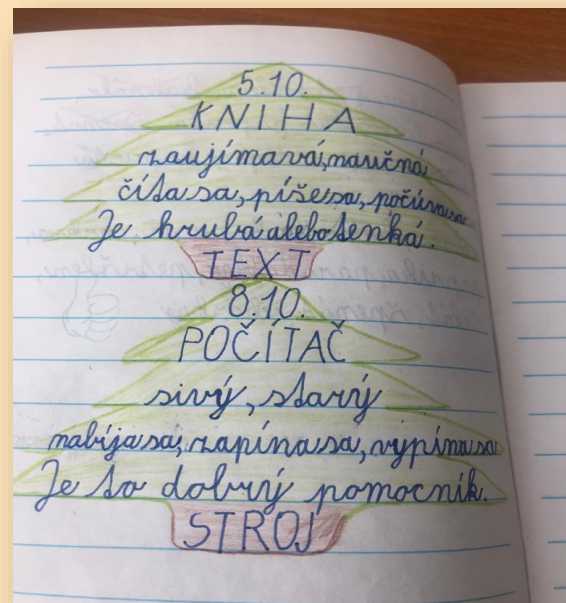 5.10.
KNIHA
zaujímavá, naučná
číta sa, píše sa, počúva sa
Je hrubá alebo tenká.
TEXT
8.10.
POČÍTAČ
sivý, starý
nabíja sa, zapína sa, vypína sa
Je to dobrý pomocník.
STROJ